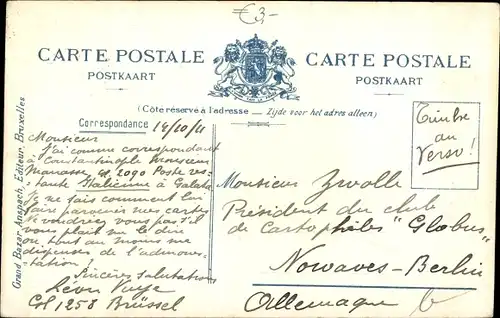 €3,-
CARTE POSTALE
POSTKAART
CARTE POSTALE
POSTKAART
(Côté réservé à l'adresse — Zijde voor het adres alleen)
Grand Bazar Anspach, Éditeur, Bruxelles
Correspondance 14/10/11
Monsieur
J'ai comme correspondant
à Constantinople Monsieur
Manasse Col. 2090 Poste res-
tante Italienne à Galata
Je ne sais comment lui
faire parvenir nos cartes
Ne voudriez vous pas s'il
vous plaît me le dire
ou, tout au moins me
dispenser de l'admones-
tation!
Sincères salutations
Léon
Col 1258 Brüssel
Timbre
au
Verso!
Monsieur Zwolle
Président du club
de Cartophiles "Globus"
Nowawes-Berlin
Allemagne